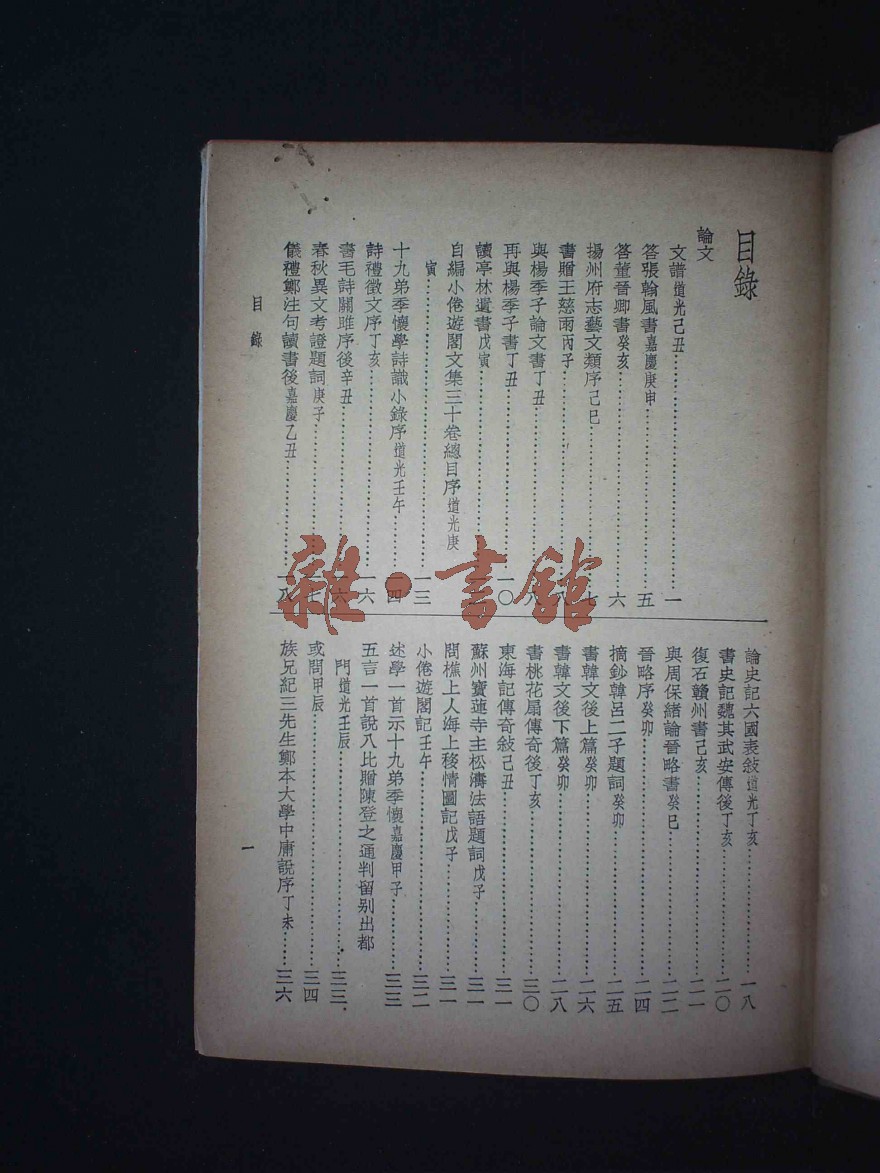 目錄
論文
文譜道光己丑…………一
答張翰風書嘉慶庚申…………五
答董晉卿書癸亥…………六
揚州府志藝文類序己巳…………七
書贈王慈雨丙子…………八
與楊季子論文書丁丑…………八
再與楊季子書丁丑…………一〇
讀亭林遺書戊寅…………
自編小倦遊閣文集三十卷總目序道光庚
寅…………一三
十九弟季懷學詩識小錄序道光壬午…………一四
詩禮徵文序丁亥…………一六
書毛詩關雎序後辛丑…………一六
春秋異文考證題詞庚子…………一七
儀禮鄭注句讀書後嘉慶乙丑…………一八
論史記六國表敍道光丁亥…………一八
書史記魏其武安傳後丁亥…………二〇
復石贛州書己亥…………二一
與周保緒論晉略書癸巳…………二二
晉略序癸卯…………二四
摘鈔韓呂二子題詞癸卯…………二五
書韓文後上篇癸卯…………二六
書韓文後下篇癸卯…………二八
書桃花扇傳奇後丁亥…………三〇
東海記傳奇敍己丑…………三一
蘇州寶蓮寺主松濤法語題詞戊子…………三一
問樵上人海上移情圖記戊子…………三一
小倦遊閣記壬午…………三二
述學一首示十九弟季懷嘉慶甲子…………三三
五言一首說八比贈陳登之通判留别出都
門道光壬辰…………三三
或問甲辰…………三四
族兄紀三先生鄭本大學中庸說序丁未…………三六
目錄
一
雜·書館